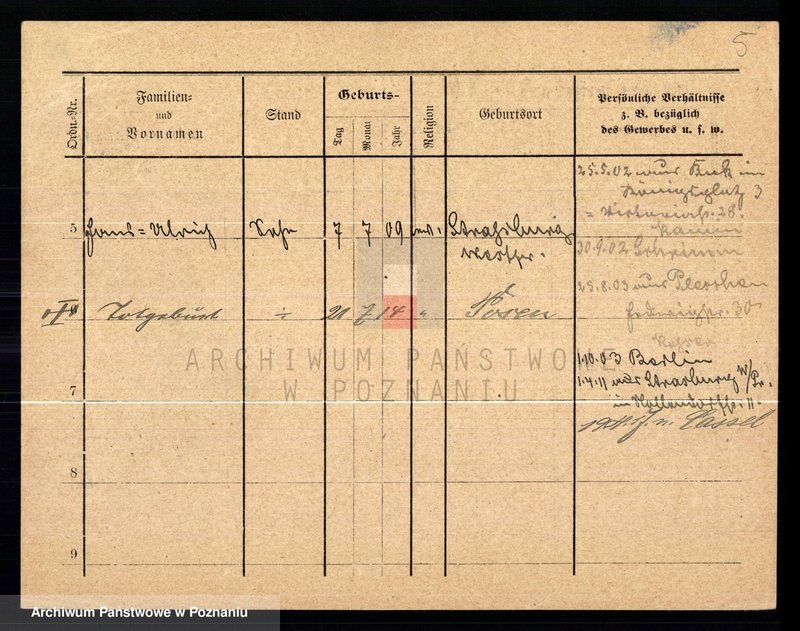 5
Ordn.-Nr.
Familien-
und
Vornamen
Stand
Geburts-
Tag
Monat
Jahr
Religion
Geburtsort
Persönliche Verhältnisse
z. B. bezüglich
des Gewerbes u. s. w.
25.5.02 aus Buk in
Königsplatz 3
= Viktoriastr. 28.
30.9.02 Schrimm
5 Hans-Ulrich Sohn 7 7 09 ev. Strasburg
Westpr.
25.8.03 aus Pleschen
Hedwigstr. 30
Totgeburt ÷ 21 7 14 " Posen
1.10.03 Berlin
1.4.11 aus Strasburg W/Pr.
in Hohendorffstr. 11.
n. Cassel
7
8
9
ARCHIWUM PAŃSTWOWE
W POZNANIU
Archiwum Państwowe w Poznaniu